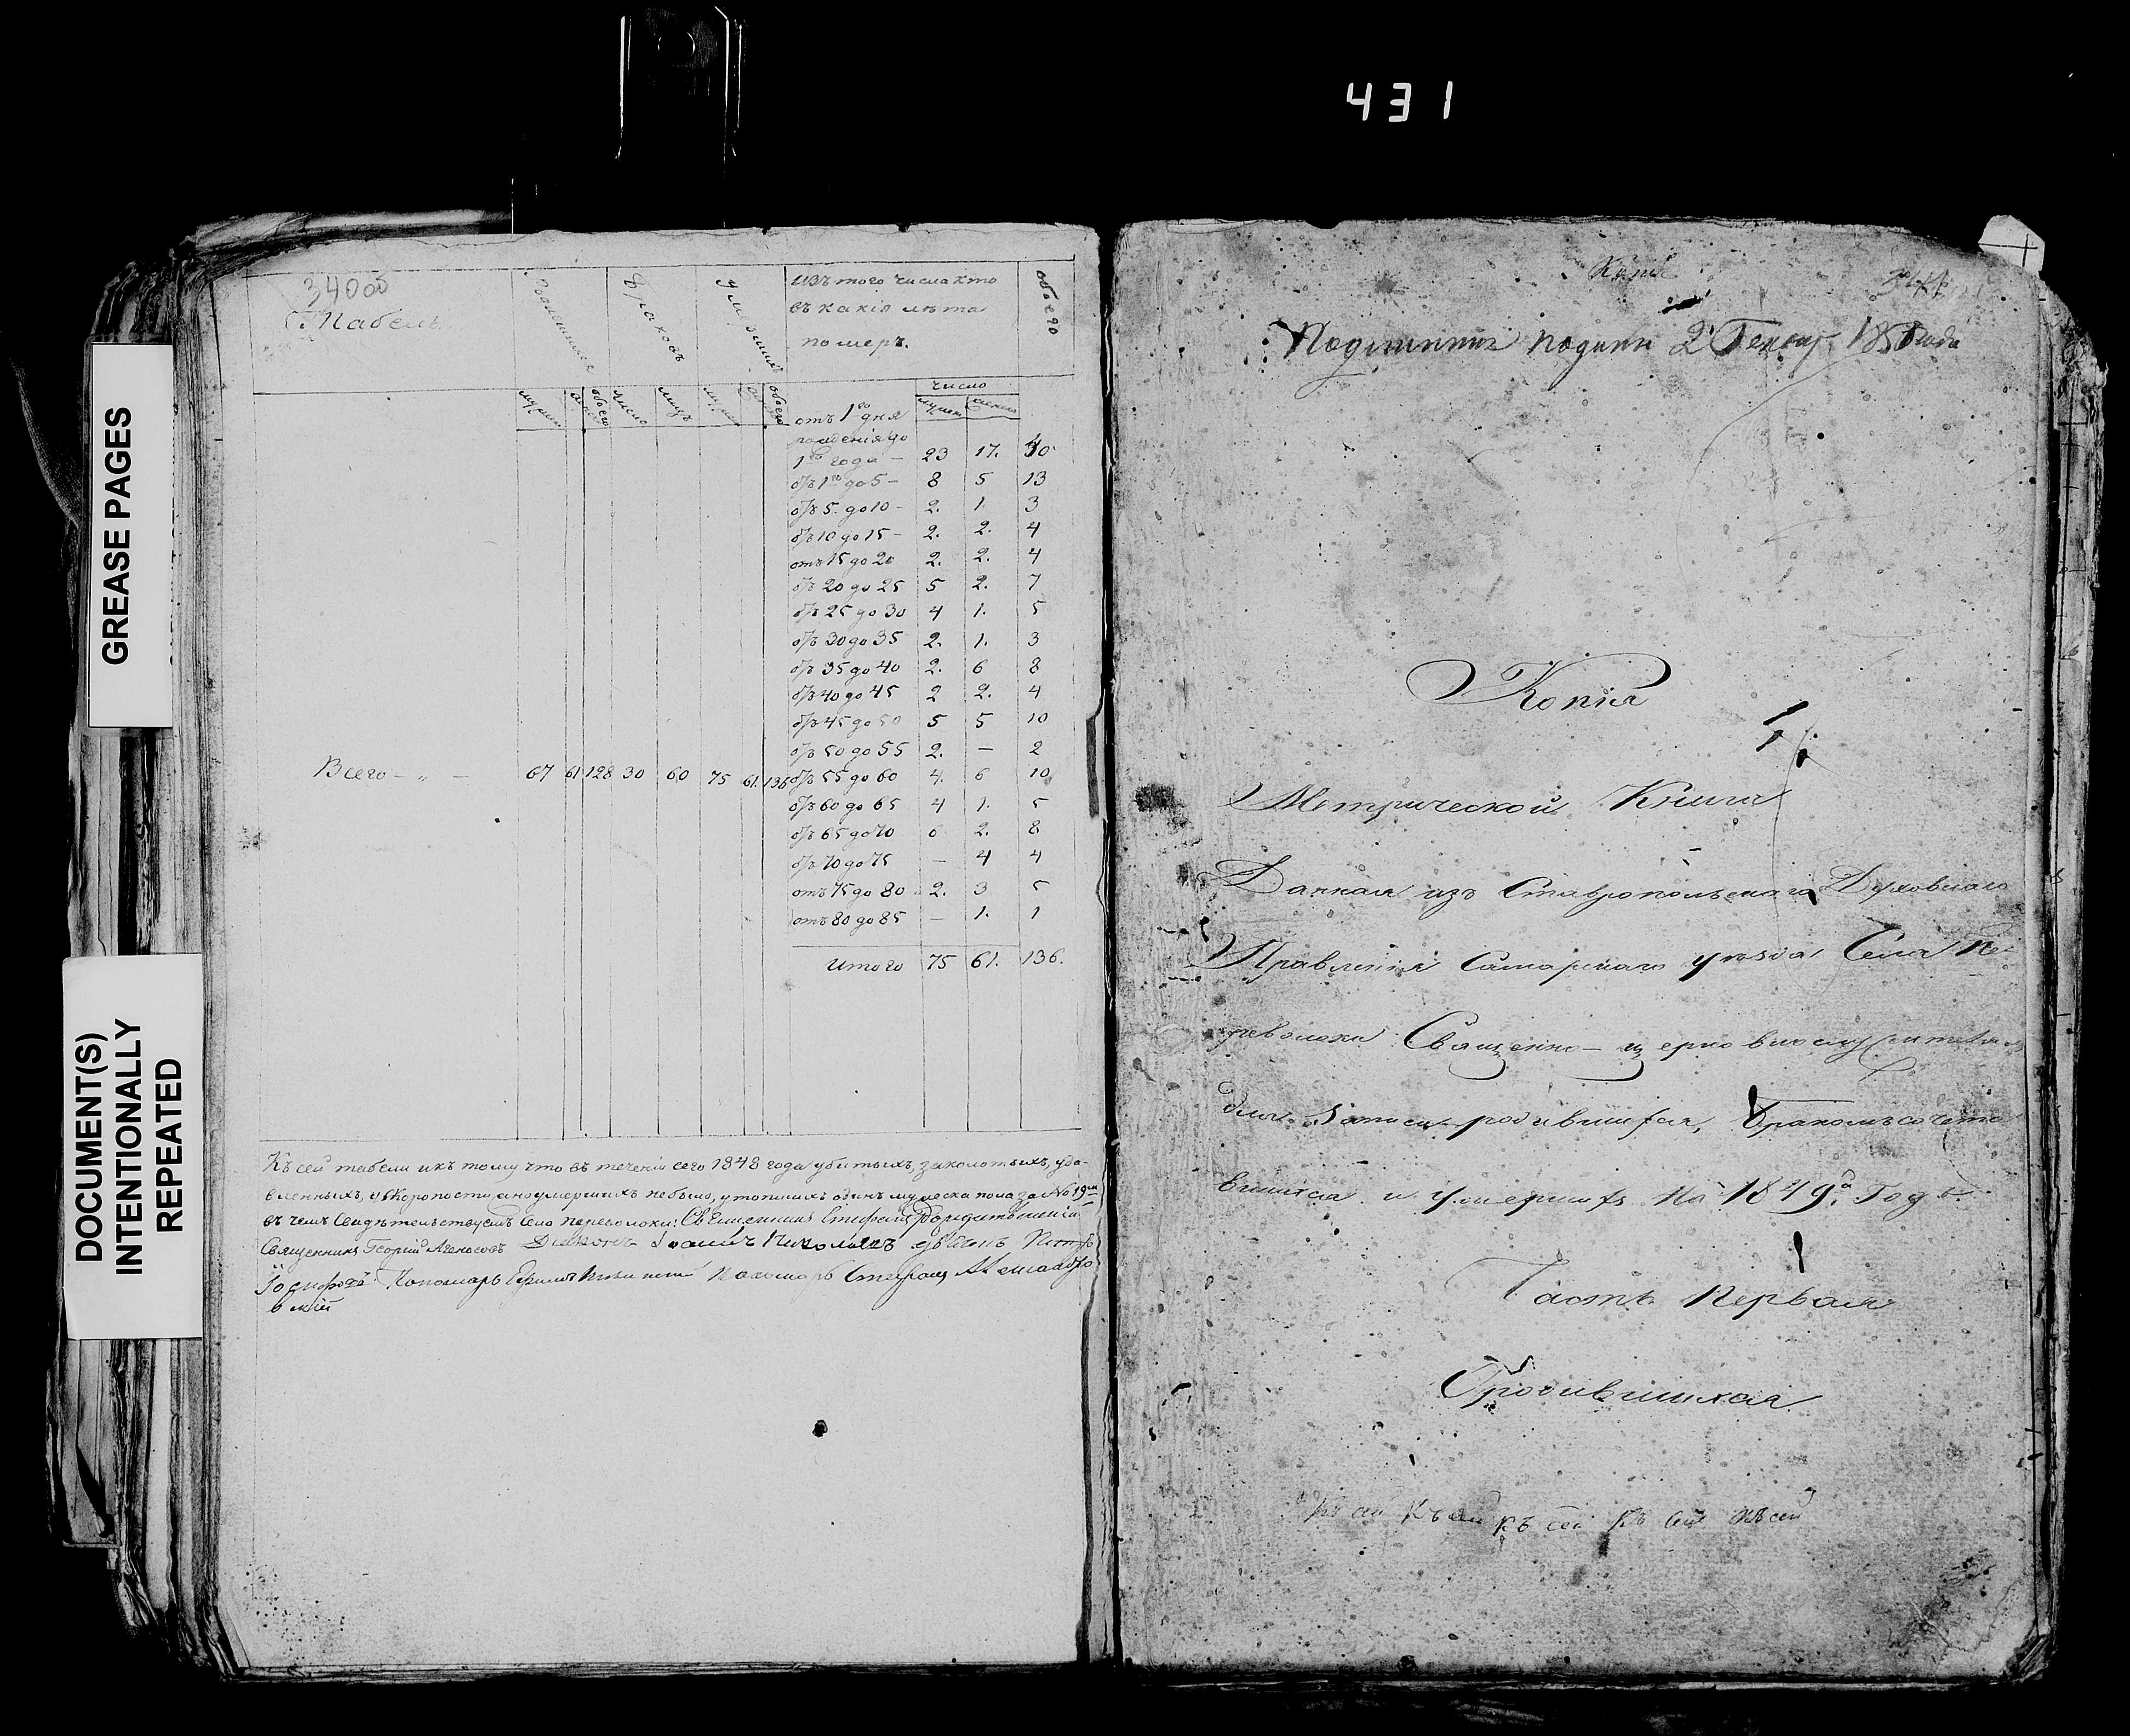 431
GREASE PAGES
DOCUMENT(S)
INTENTIONALLY
REPEATED
340об
Табель
Браковъ
Изъ того числа кто
въ какія лѣта
померъ.
обоего
число
обоего число лицъ обоего
отъ 1го дня
рожденія до
1го года — 23 17. 40
отъ 1го до 5 — 8 5 13
отъ 5. до 10 - 2. 1. 3
отъ 10 до 15 - 2. 2. 4
отъ 15 до 20 2. 2. 4
отъ 20 до 25 5 2. 7
отъ 25 до 30 4 1. 5
отъ 30 до 35 2. 1. 3
отъ 35 до 40 2. 6 8
отъ 40 до 45 2 2. 4
отъ 45 до 50 5 5 10
отъ 50 до 55 2. — 2
Всего - „ - 67 61 128 30 60 75 61. 136
отъ 55 до 60 4. 6 10
отъ 60 до 65 4 1. 5
отъ 65 до 70 6 2. 8
отъ 70 до 75 — 4 4
отъ 75 до 80 2. 3 5
отъ 80 до 85 — 1. 1
Итого 75 61. 136.
Къ сей табели и къ тому что въ теченіи сего 1848 года убитыхъ, заколотыхъ, уда-
вленныхъ, и скоропостижно умершихъ небыло, утопшихъ одинъ мужеска пола за No 19м
въ чемъ свидѣтельствуемъ Села Переволоки: Священникъ Стефанъ
Священникъ Георгій Діаконъ Іоаннъ
Пономарь Пономарь Стефанъ Александро
вскій
Подлинник подан 2 Генвар 1850 года
Копія
Метрической Книги
Данная изъ Ставропольскаго Духовнаго
Правленія Самарскаго уѣзда Села Пе-
револоки Священно-церковнослужителямъ
для записи родившихся, Бракомъ сочета
вшихся и умершихъ На 1849й Годъ.
Часть Первая
О родившихся
Къ сей Къ сей Къ сей Къ сей Къ сей